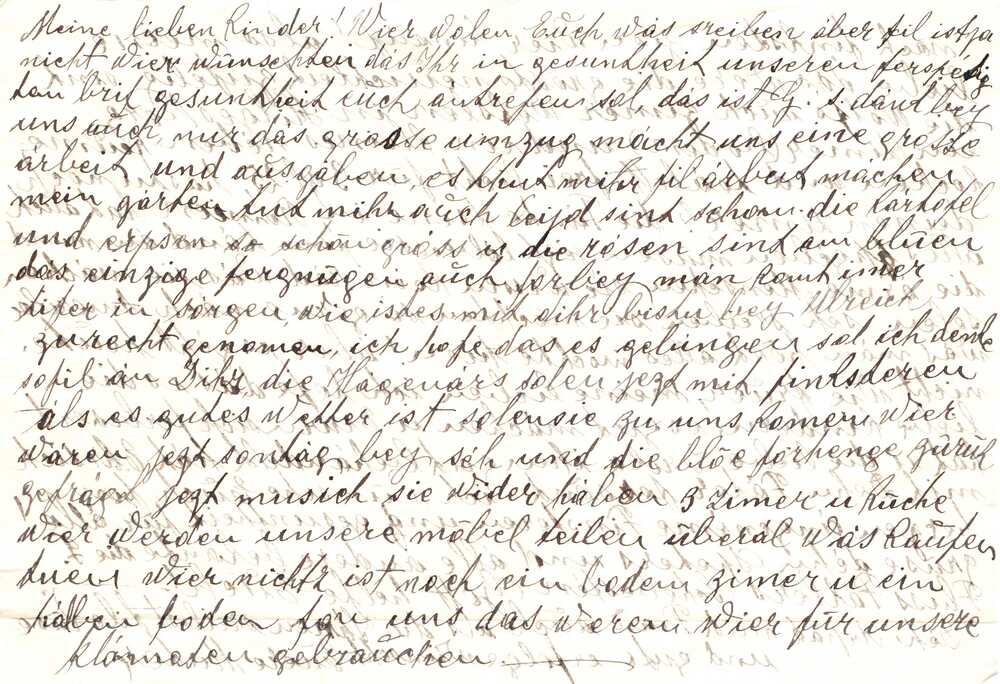 Meine lieben Kinder! Wier wolen Euch was sreiben aber fil ist ja
nicht Wier wünschten das Ihr in gesuntheit unseren ferspätig
ten brif gesuntheit euch antrefen sol, das ist G. s. dank bey
uns auch, nur das grosse umzug macht uns eine grosse
arbeit und ausgaben, es thut mihr fil arbeit machen
mein garten tut mihr auch leijd sint schon die Kartofel
und erpsen so schön gross u die rosen sint am blüen
das einzige fergnügen auch forbey man komt imer
tifer in sorgen, wie ist es mit dihr bistu bey Ulreich
zurecht genomen, ich hofe das es gelungen sol ich denke
sofil an Dihr, die Hagenärs solen jezt mit finksderen
als es gudes Wetter ist solensie zu uns komen Wier
wären jezt sontag bey seh und die blöe forhenge zurük
gefragt jezt musich sie wider haben 3 zimer u Küche
Wier Werden unsere möbel teilen überal Was Kaufen
tuen Wier nichtz ist noch ein boden zimer u ein
halben boden fon uns das weren Wier für unsere
klamoten gebrauchen